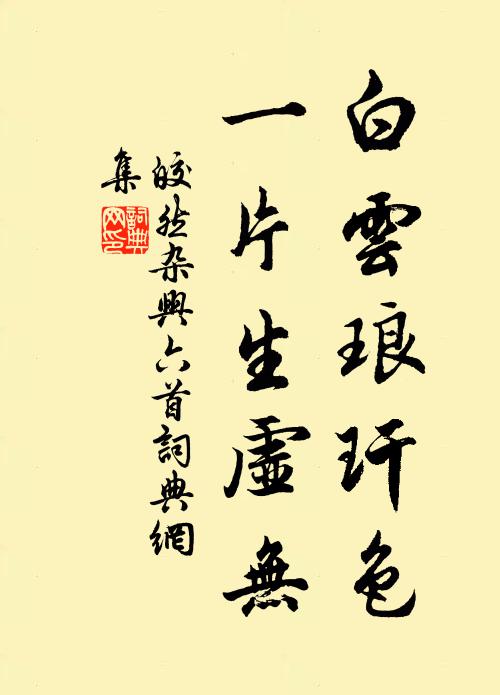 白雲琅玕色
一片生虛無
皎然杂興六首詞典網
集
詞典
网印